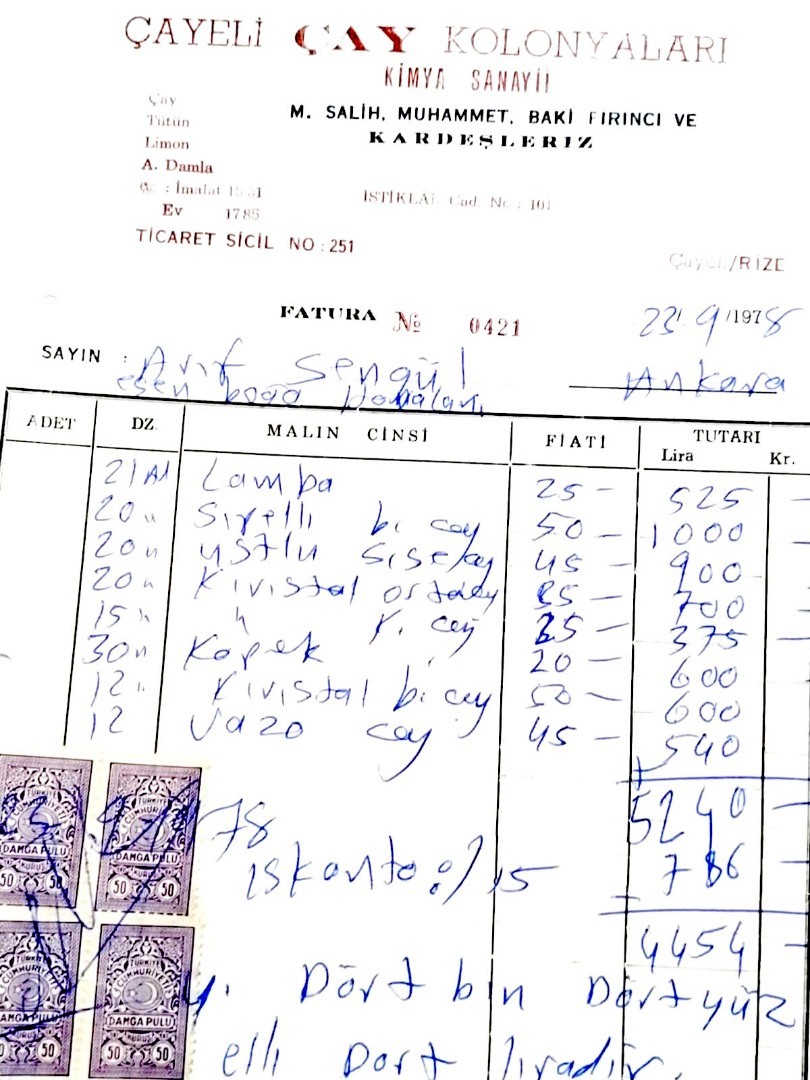 ÇAYELİ ÇAY KOLONYALARI
KİMYA SANAYİİ
M. SALİH, MUHAMMET, BAKİ FIRINCI VE
KARDEŞLERIZ
Çay
Tütün
Limon
A. Damla
: İmalat
Ev 1785
İSTİKLAL Cad. No : 101
TİCARET SİCİL NO : 251
Çayeli/RİZE
FATURA № 0421
23/9/1978
SAYIN : Arif Sengül Ankara
esen boğa
ADET DZ. MALIN CİNSİ FİATİ TUTARI
Lira Kr.
21 Ad Lamba 25 — 525 —
20 " bi cay 50 — 1000 —
20 " 45 — 900 —
20 " Kiristal 35 — 700 —
15 " " K. cay 25 — 375 —
30 " Kapek 20 — 600
12 " Kiristal bi cay 50 — 600
12 Vazo cay 45 — 540
5240 —
23 9 1978
iskonto % 15 786 —
4454 —
y. Dört bin Dört yüz
elli Dört liradır.
TÜRKİYE CUMHURİYETİ
DAMGA PULU
50 KURUŞ 50
TÜRKİYE CUMHURİYETİ
DAMGA PULU
50 KURUŞ 50
TÜRKİYE CUMHURİYETİ
DAMGA PULU
50 KURUŞ 50
TÜRKİYE CUMHURİYETİ
DAMGA PULU
50 KURUŞ 50